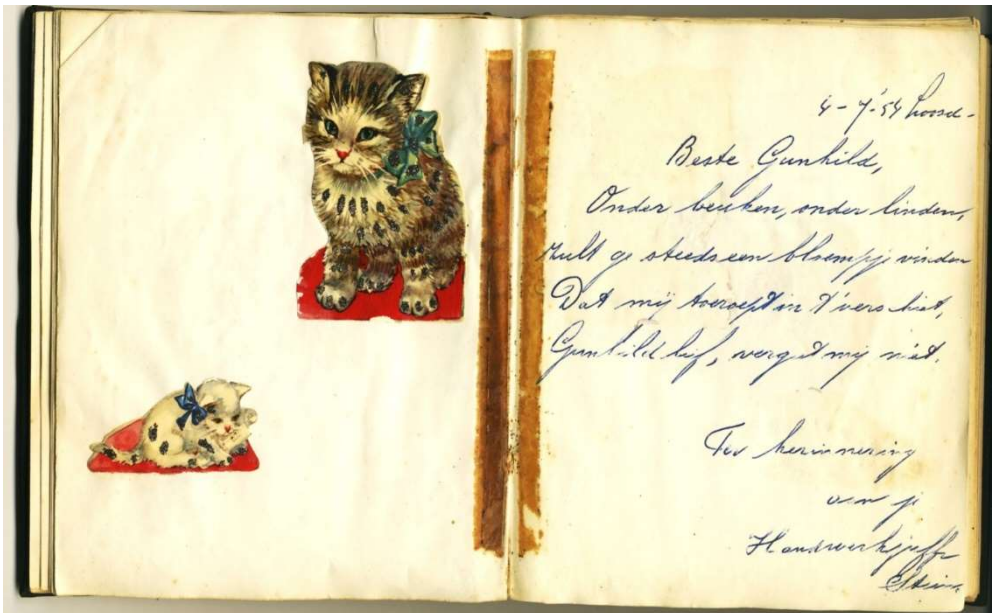 4-7-'54
Beste Gunhild,
Onder beuken, onder linden,
zult ge steeds een bloempje vinden
Dat mij toeroept in 't verschiet,
Gunhild lief, vergit mij niet.
Ter herinnering
van je
Handwerkjuffr